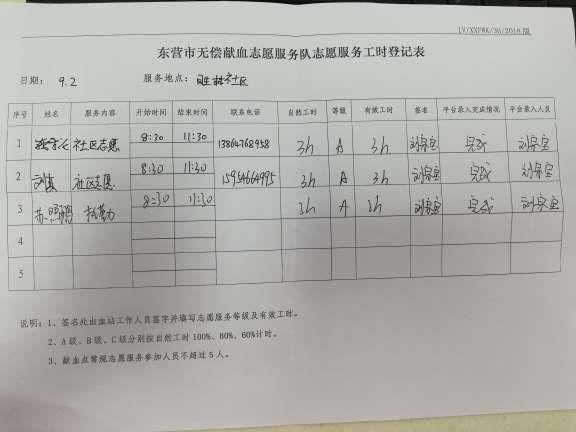 IV/XXFWK/36/2018版
东营市无偿献血志愿服务队志愿服务工时登记表
日期： 9.2 服务地点： 社区
序号 姓名 服务内容 开始时间 结束时间 联系电话 自然工时 等级 有效工时 签名 平台录入完成情况 平台录入人员
1 社区志愿 8:30 11:30 13864768958 3h A 3h 刘宗宝 完成 刘宗宝
2 社区志愿 8:30 11:30 15954664995 3h A 3h 刘宗宝 完成 刘宗宝
3 8:30 11:30 3h A 3h 刘宗宝 完成 刘宗宝
4
5
说明：1、签名处由血站工作人员签字并填写志愿服务等级及有效工时。
2、A级、B级、C级分别按自然工时100%、80%、60%计时。
3、献血点常规志愿服务参加人员不超过5人。